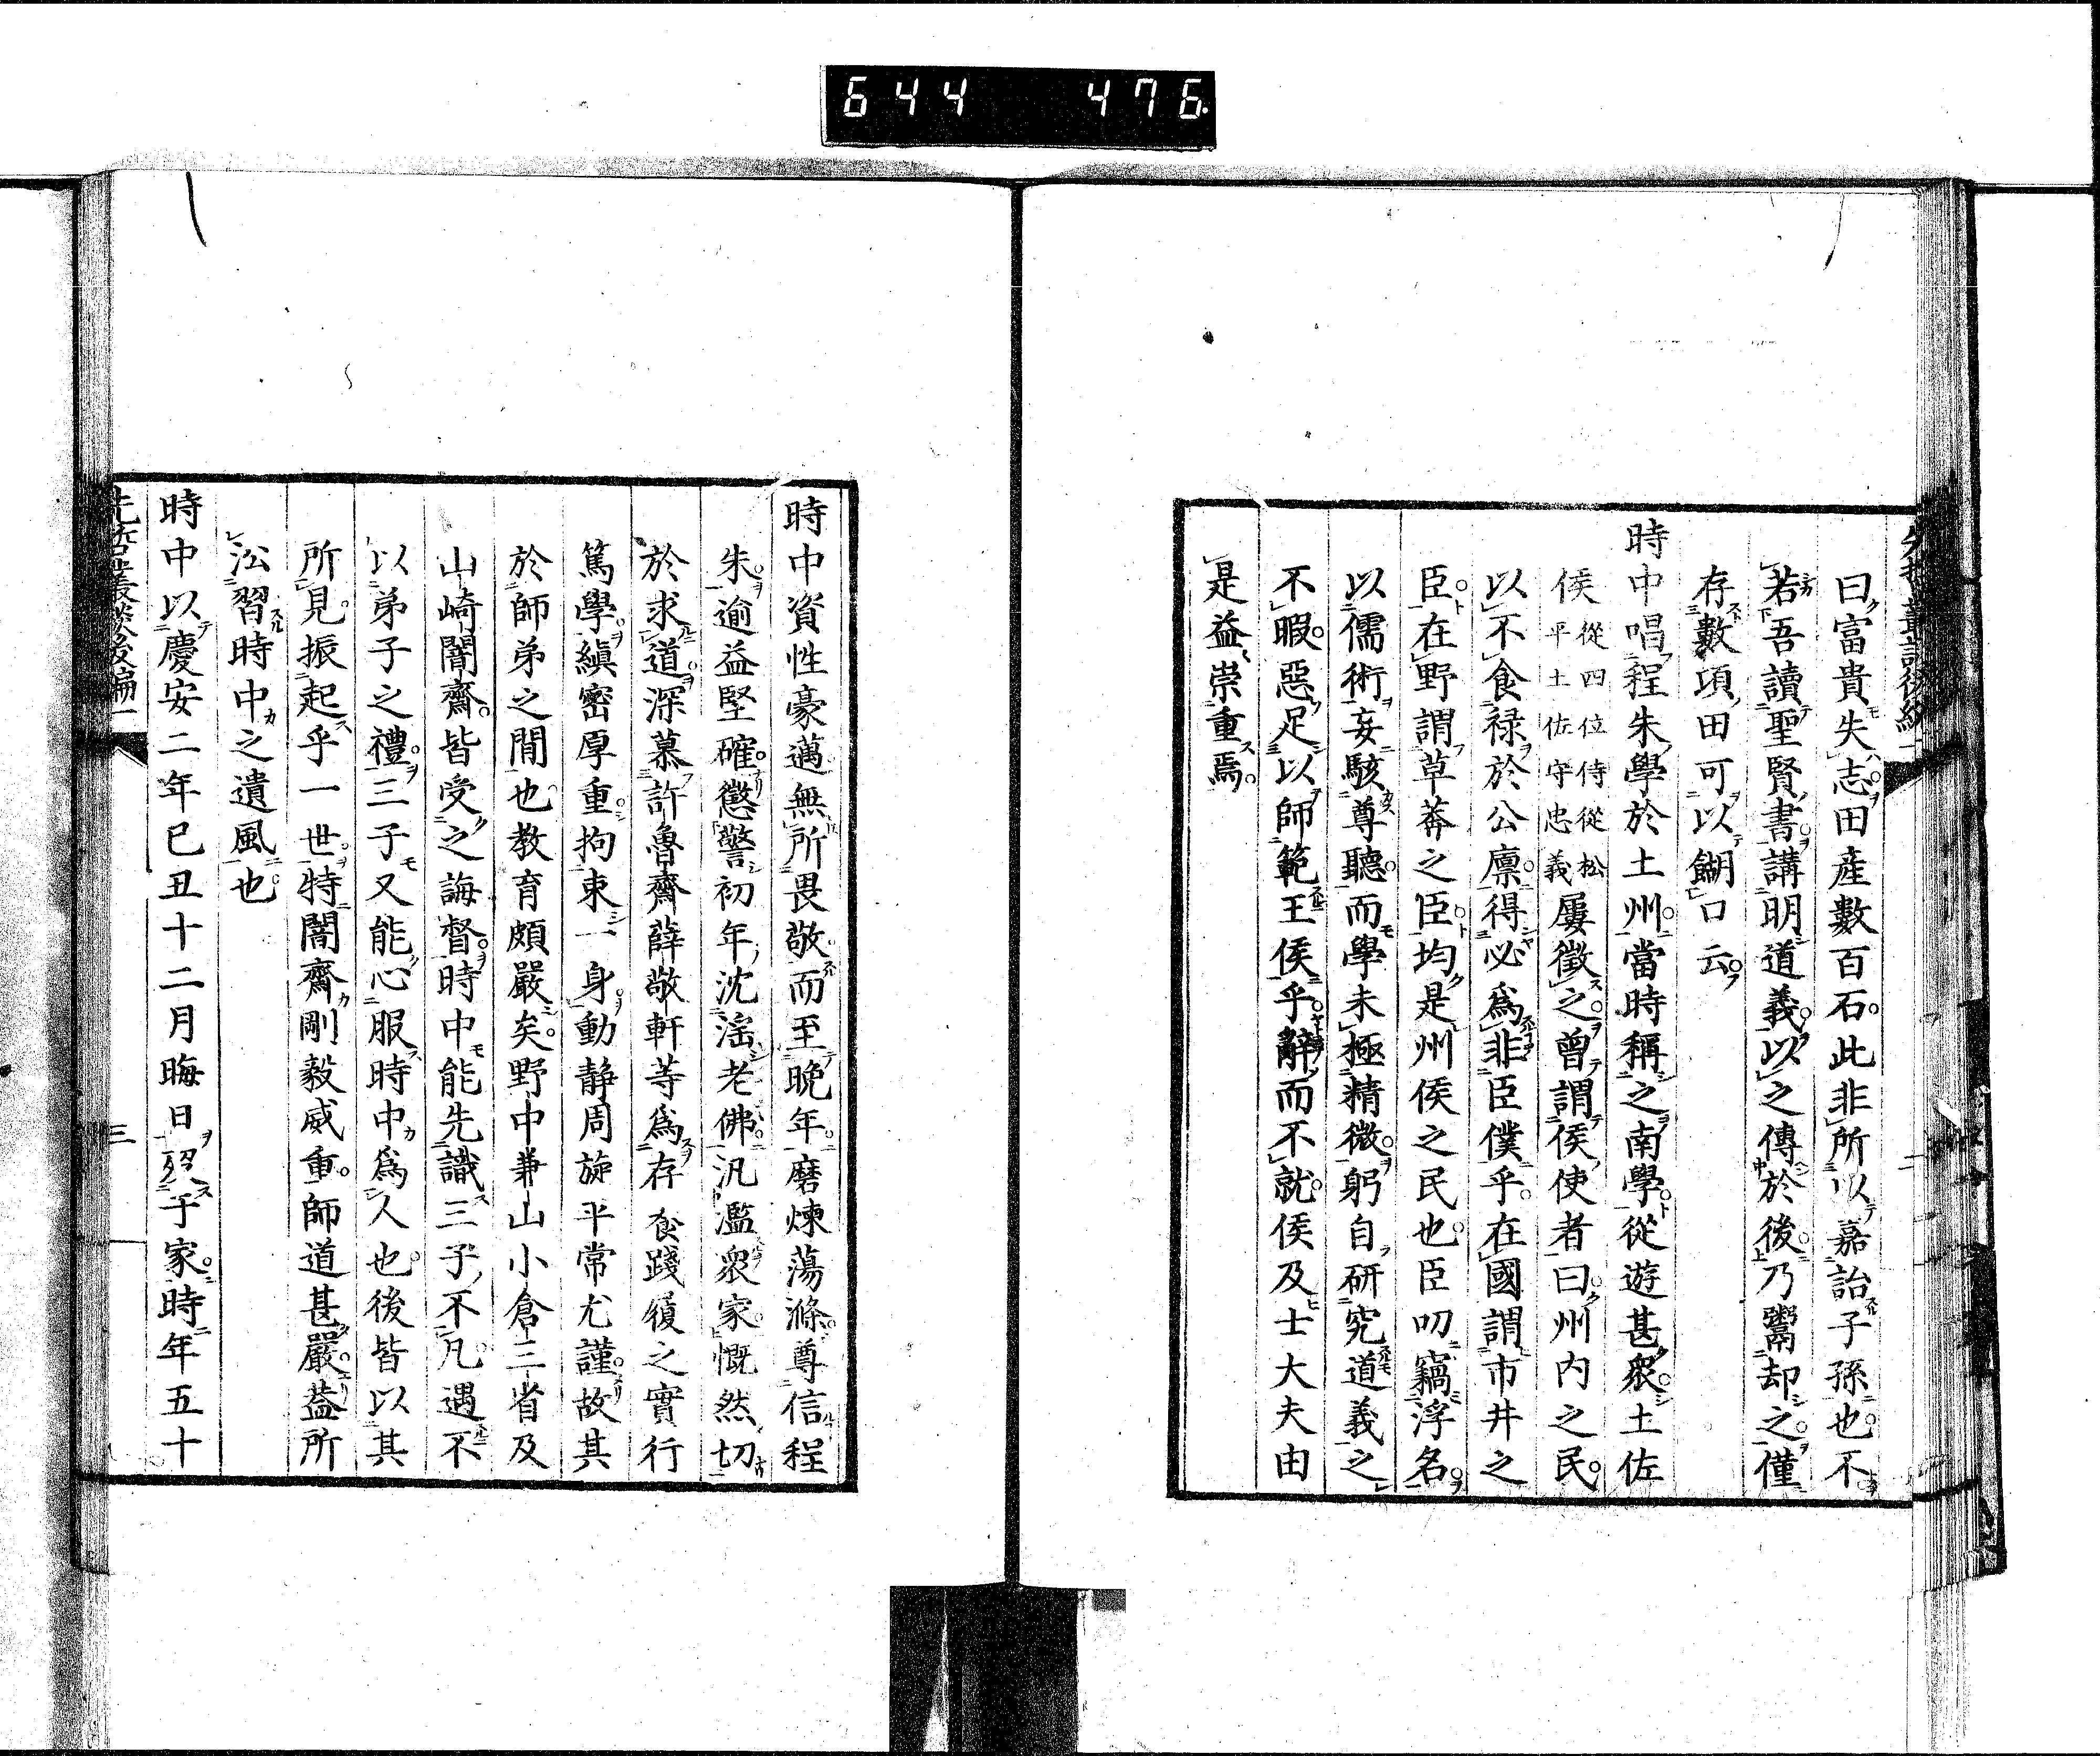 644 476
曰富貴失志田産數百石此非所以嘉詒子孫也不
若吾讀聖賢書講明道義以之傳於後乃鬻却之僅
存數項田可以餬口云
時中唱程朱學於土州當時稱之南學從遊甚衆土佐
侯從四位侍從松平土佐守忠義屢徵之曾謂侯使者曰州内之民
以不食禄於公廪得必爲非臣僕乎在國謂市井之
臣在野謂草莽之臣均是州侯之民也臣叨竊浮名
以儒術妄駭尊聽而學未極精微躬自研究道義之
不暇惡足以師範王侯乎辭而不就侯及士大夫由
是益崇重焉
時中資性豪邁無所畏敬而至晩年磨煉蕩滌尊信程
朱逾益堅確懲警初年沈滛老佛汎濫衆家慨然切
於求道深慕許魯齋薛敬軒等爲存養踐履之實行
篤學縝密厚重拘束一身動靜周旋平常尤謹故其
於師弟之間也教育頗嚴矣野中兼山小倉三省及
山崎闇齋皆受之誨督時中能先識三子不凡遇不
以弟子之禮三子又能心服時中爲人也後皆以其
所見振起乎一世特闇齋剛毅威重師道甚嚴葢所
㳂習時中之遺風也
時中以慶安二年已丑十二月晦日歿于家時年五十
先哲叢談後編一
三